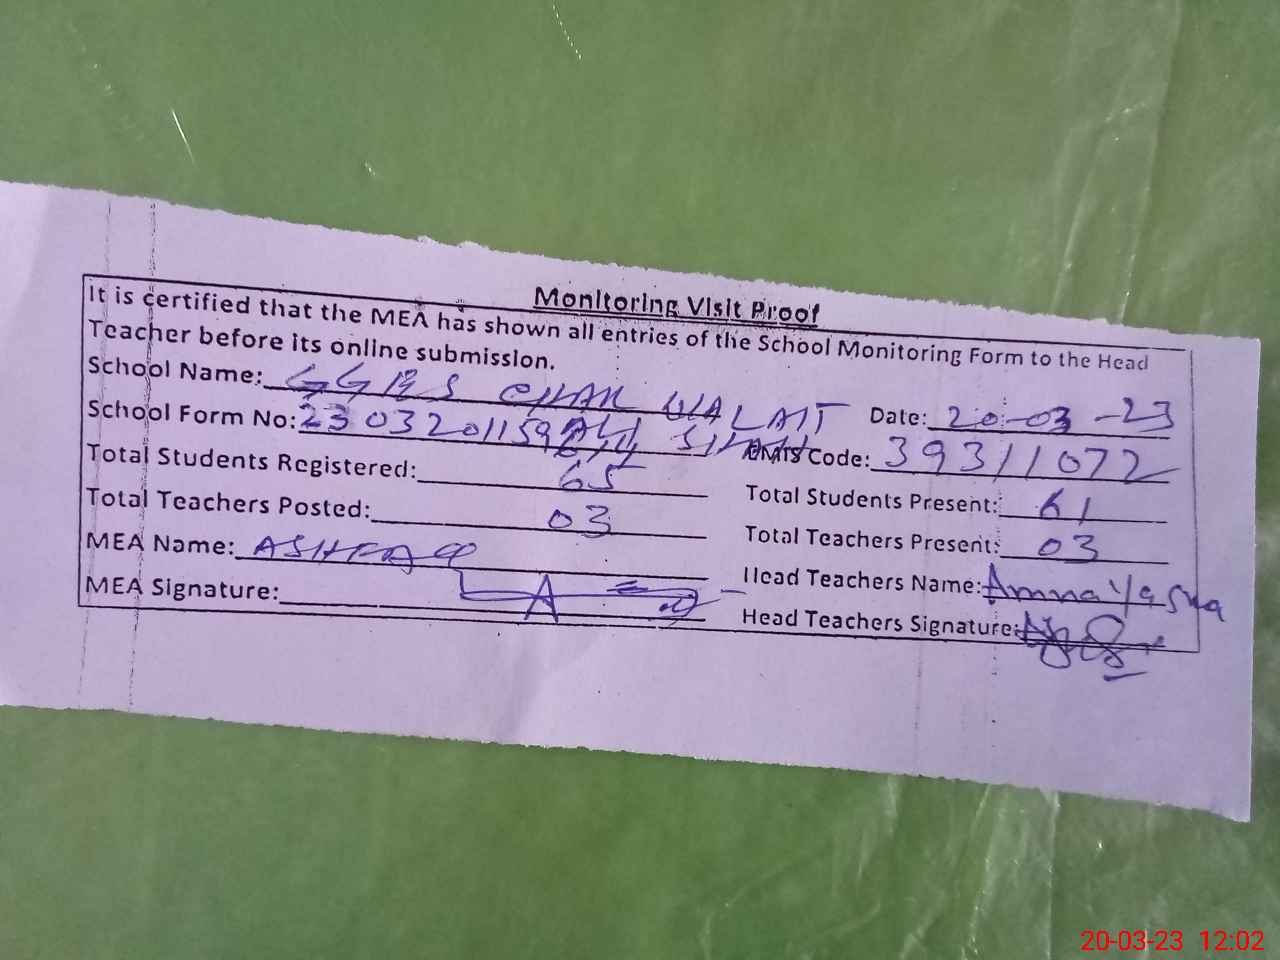 Monitoring Visit Proof
It is certified that the MEA has shown all entries of the School Monitoring Form to the Head
Teacher before its online submission.
School Name: GGES CHAK WALAIT Date: 20-03-23
ALI SHAH
School Form No: 2303201159 EMIS Code: 39311072
Total Students Registered: 65 Total Students Present: 61
Total Teachers Posted: 03 Total Teachers Present: 03
MEA Name: ASHFAQ Head Teachers Name: Amna
MEA Signature: Head Teachers Signature:
20-03-23 12:02